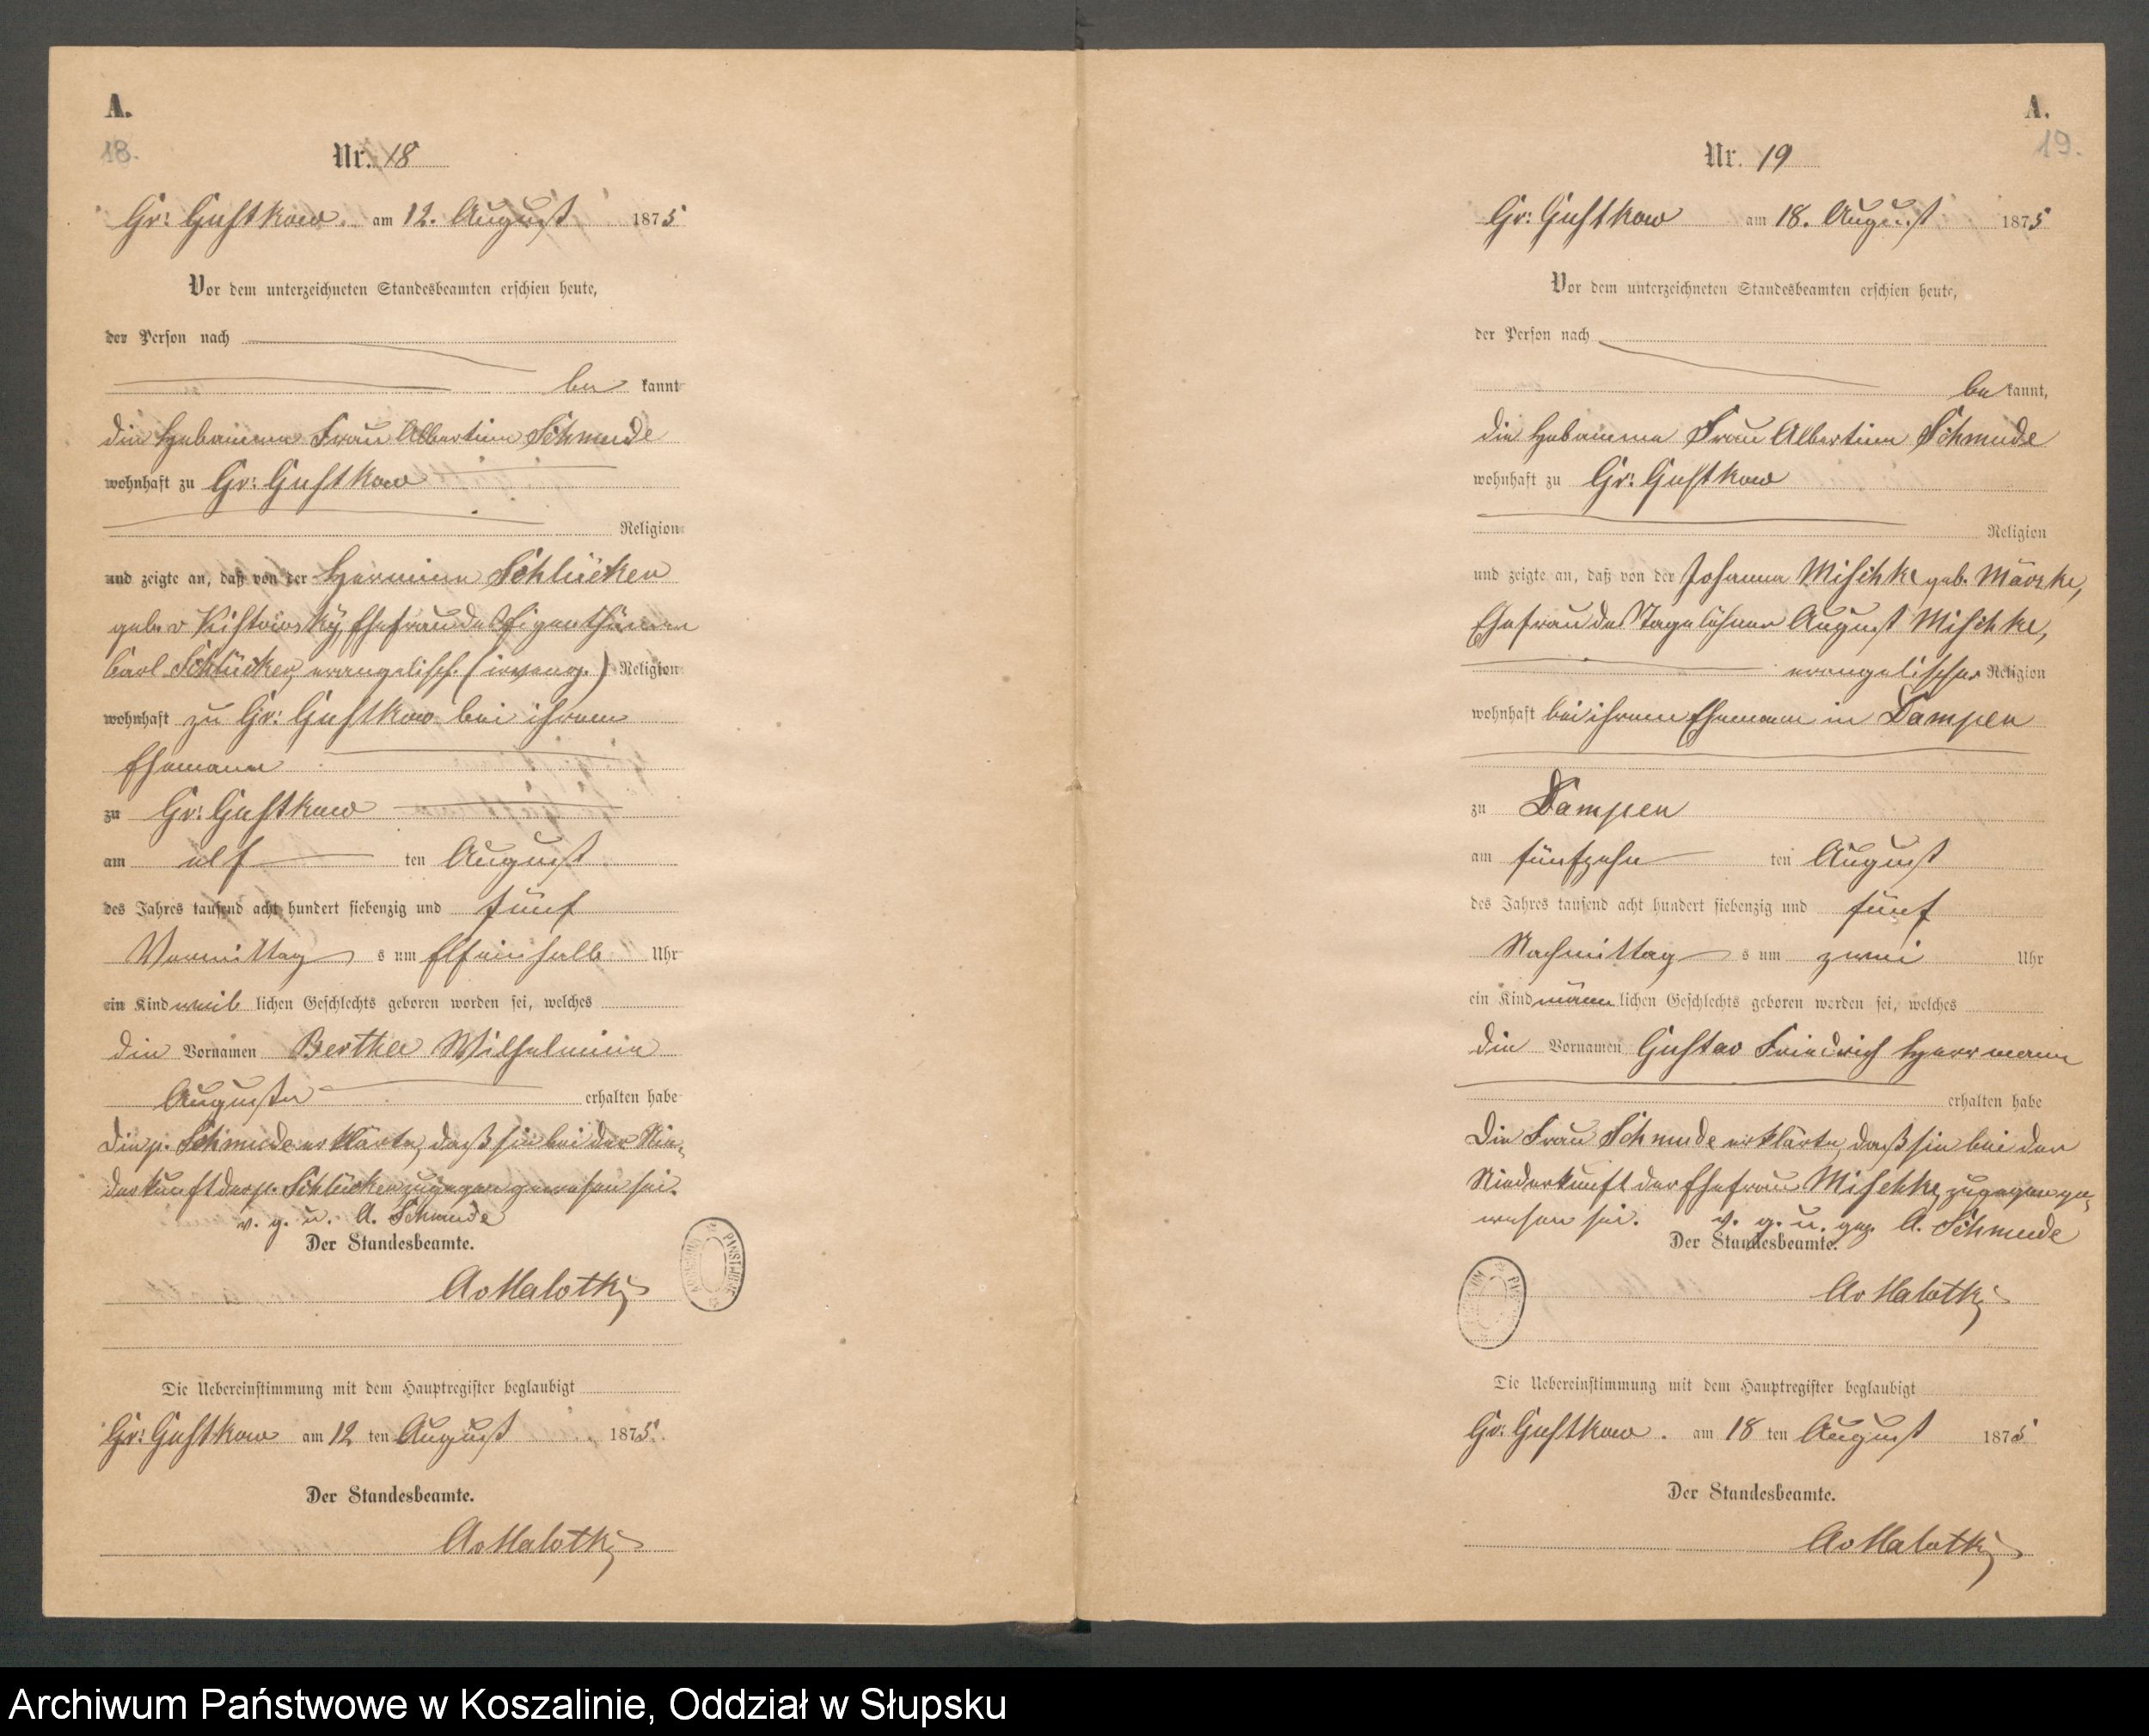 A.
18.
Nr. 18
Gr: Gustkow am 12. August 1875
Vor dem unterzeichneten Standesbeamten erschien heute,
der Person nach
be kannt
die Hebamme Frau Albertine Schmude
wohnhaft zu Gr: Gustkow
Religion
und zeigte an, daß von der Hermine Schlücker
geb. v Kistowsky, Ehefrau des Eigenthümer
Carl Schlücker, evangelisch Religion
wohnhaft zu Gr: Gustkow bei ihrem
Ehemann
zu Gr: Gustkow
am elf ten August
des Jahres tausend acht hundert siebenzig und fünf
Vormittag s um Elfeinhalb Uhr
ein Kind weib lichen Geschlechts geboren worden sei, welches
die Vornamen Bertha Wilhelmine
Auguste erhalten habe
Die p. Schmude erklärte, daß sie bei der Nie-
derkunft der p. Schlücker zugegen gewesen sei.
v. g. u. A. Schmude
Der Standesbeamte.
AvMalotky
Die Uebereinstimmung mit dem Hauptregister beglaubigt
Gr: Gustkow am 12 ten August 1875.
Der Standesbeamte.
AvMalotky
A.
19.
Nr. 19
Gr: Gustkow am 18. August 1875
Vor dem unterzeichneten Standesbeamten erschien heute,
der Person nach
be kannt,
die Hebamme Frau Albertine Schmude
wohnhaft zu Gr: Gustkow
Religion
und zeigte an, daß von der Johanna Mischke geb. März ke,
Ehefrau des Tagelöhner August Mischke,
evangelischer Religion
wohnhaft bei ihrem Ehemann in Dampen
zu Dampen
am fünfzehn ten August
des Jahres tausend acht hundert siebenzig und fünf
Nachmittag s um zwei Uhr
ein Kind männ lichen Geschlechts geboren worden sei, welches
die Vornamen Gustav Friedrich Herrmann
erhalten habe
Die Frau Schmude erklärte, daß sie bei der
Niederkunft der Ehefrau Mischke, zugegen ge-
wesen sei. v. g. u. gez. A. Schmude
Der Standesbeamte.
AvMalotky
Die Uebereinstimmung mit dem Hauptregister beglaubigt
Gr: Gustkow. am 18 ten August 1875
Der Standesbeamte.
AvMalotky
Archiwum Państwowe w Koszalinie, Oddział w Słupsku